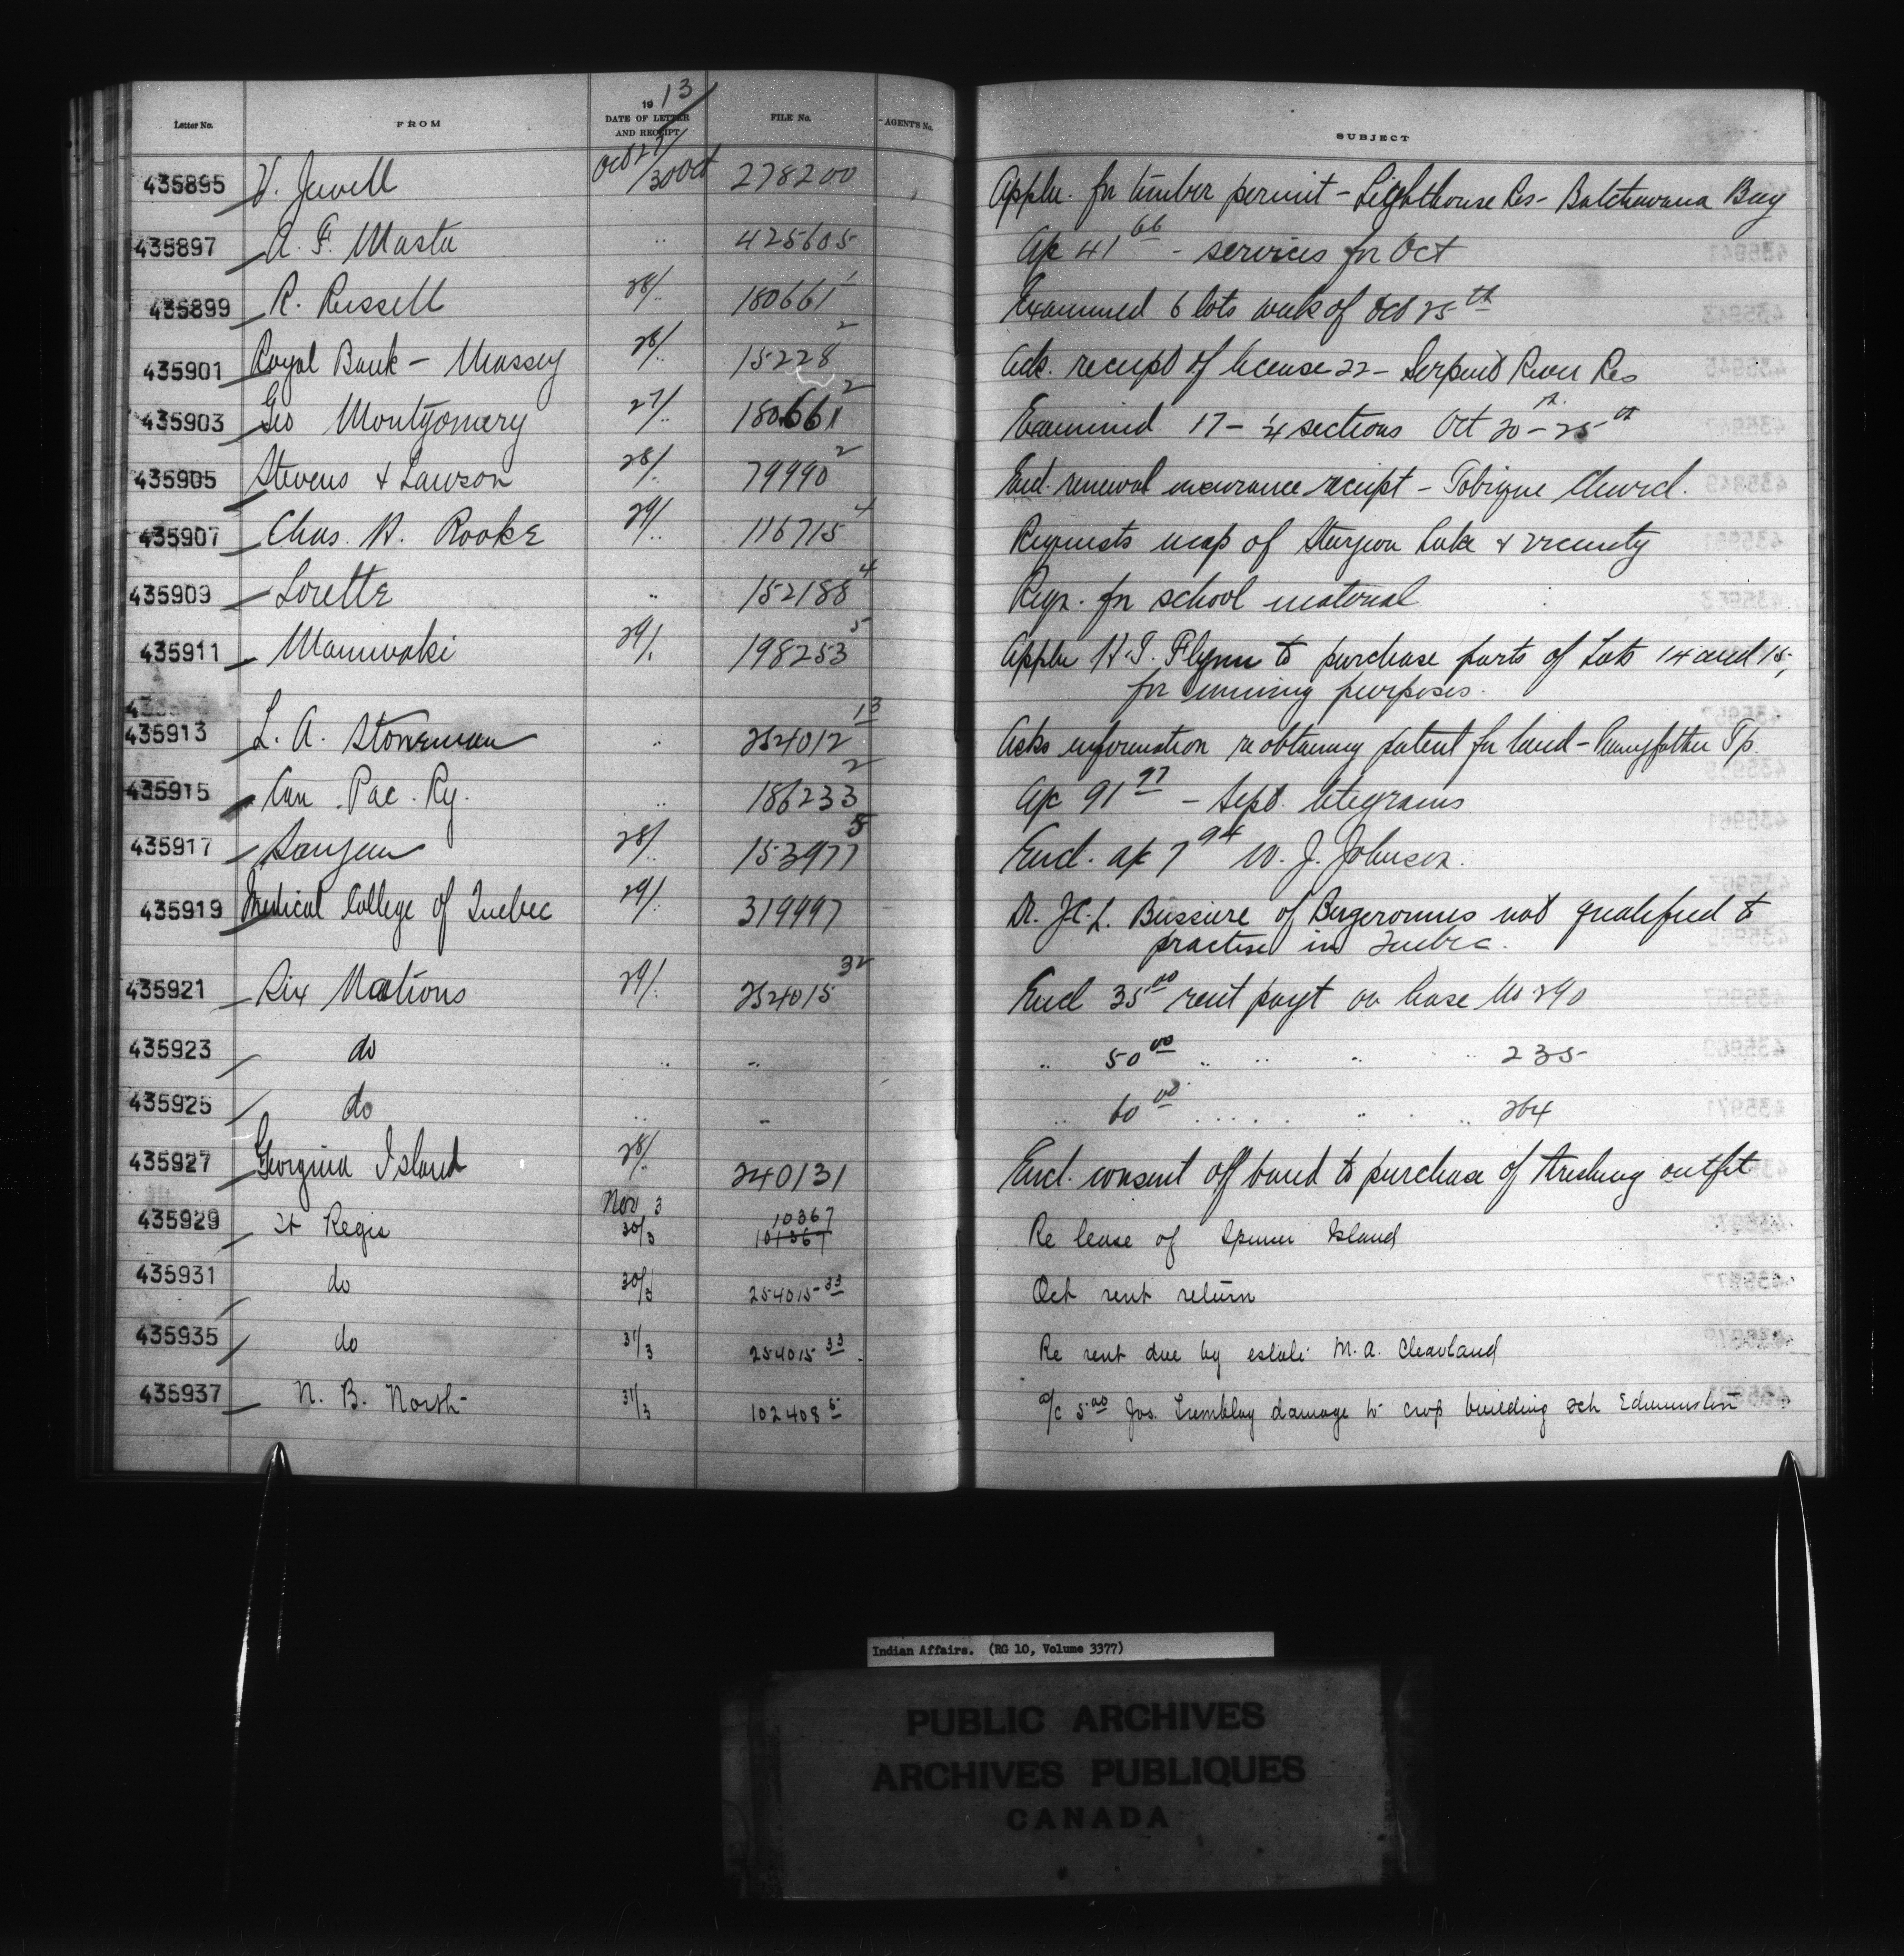 Letter No. FROM 1913 DATE OF LETTER AND RECEIPT FILE No. AGENT'S No. SUBJECT
435895 V. Jewell Oct 27/30 Oct 278200 Applн. for timber permit - Lighthouse Res - Batchawana Bay
435897 A. F. Masta .. 425605 a/c 41 66 - services for Oct
435899 R. Russell 28/.. 180661 1 Examined 6 lots week of Oct 25th
435901 Royal Bank - Massey 28/.. 15228 2 Ack. receipt of license 22 - Serpent River Res
435903 Geo Montgomery 27/.. 180661 2 Examined 17 - 1/4 sections Oct 20th - 25th
435905 Stevens & Lawson 28/.. 79990 2 Encl. renewal insurance receipt - Tobique Church.
435907 Chas. H. Rooke 29/.. 116715 4 Requests map of Sturgeon Lake & vicinity
435909 Lorette .. 152188 4 Reqn. for school material
435911 Maniwaki 29/.. 198253 5 Appln H. J. Flynn to purchase parts of Lots 14 and 15,
for mining purposes.
435913 L. A. Stoneman .. 254012 13 Asks information re obtaining patent for land - Pennyfather Tp.
435915 Can. Pac. Ry. .. 186233 2 a/c 91 97 - Sept. telegrams
435917 Saugeen 28/.. 153977 5 Encl. a/c 7 94 W. J. Johnson.
435919 Medical College of Quebec 29/.. 319997 Dr. J.C.L. Bussiere of Bergeronnes not qualified to
practise in Quebec.
435921 Six Nations 29/.. 254015 32 Encl 35 00 rent payt on lease No 290
435923 do .. .. .. 50 00 .. .. .. .. 235
435925 do .. .. .. 60 00 .. .. .. .. 264
435927 Georgina Island 28/.. 240131 Encl. consent of band to purchase of threshing outfit
435929 St Regis Nov 3 30/3 10367 101367 Re lease of Island
435931 do 30/3 254015-33 Oct rent return
435935 do 31/3 254015 33 Re rent due by estate M. A. Cleavland
435937 N. B. North - 31/3 102408 5 a/c 5.00 Jos. Tremblay damage to crop building sch Edmunston
Indian Affairs. (RG 10, Volume 3377)
PUBLIC ARCHIVES
ARCHIVES PUBLIQUES
CANADA